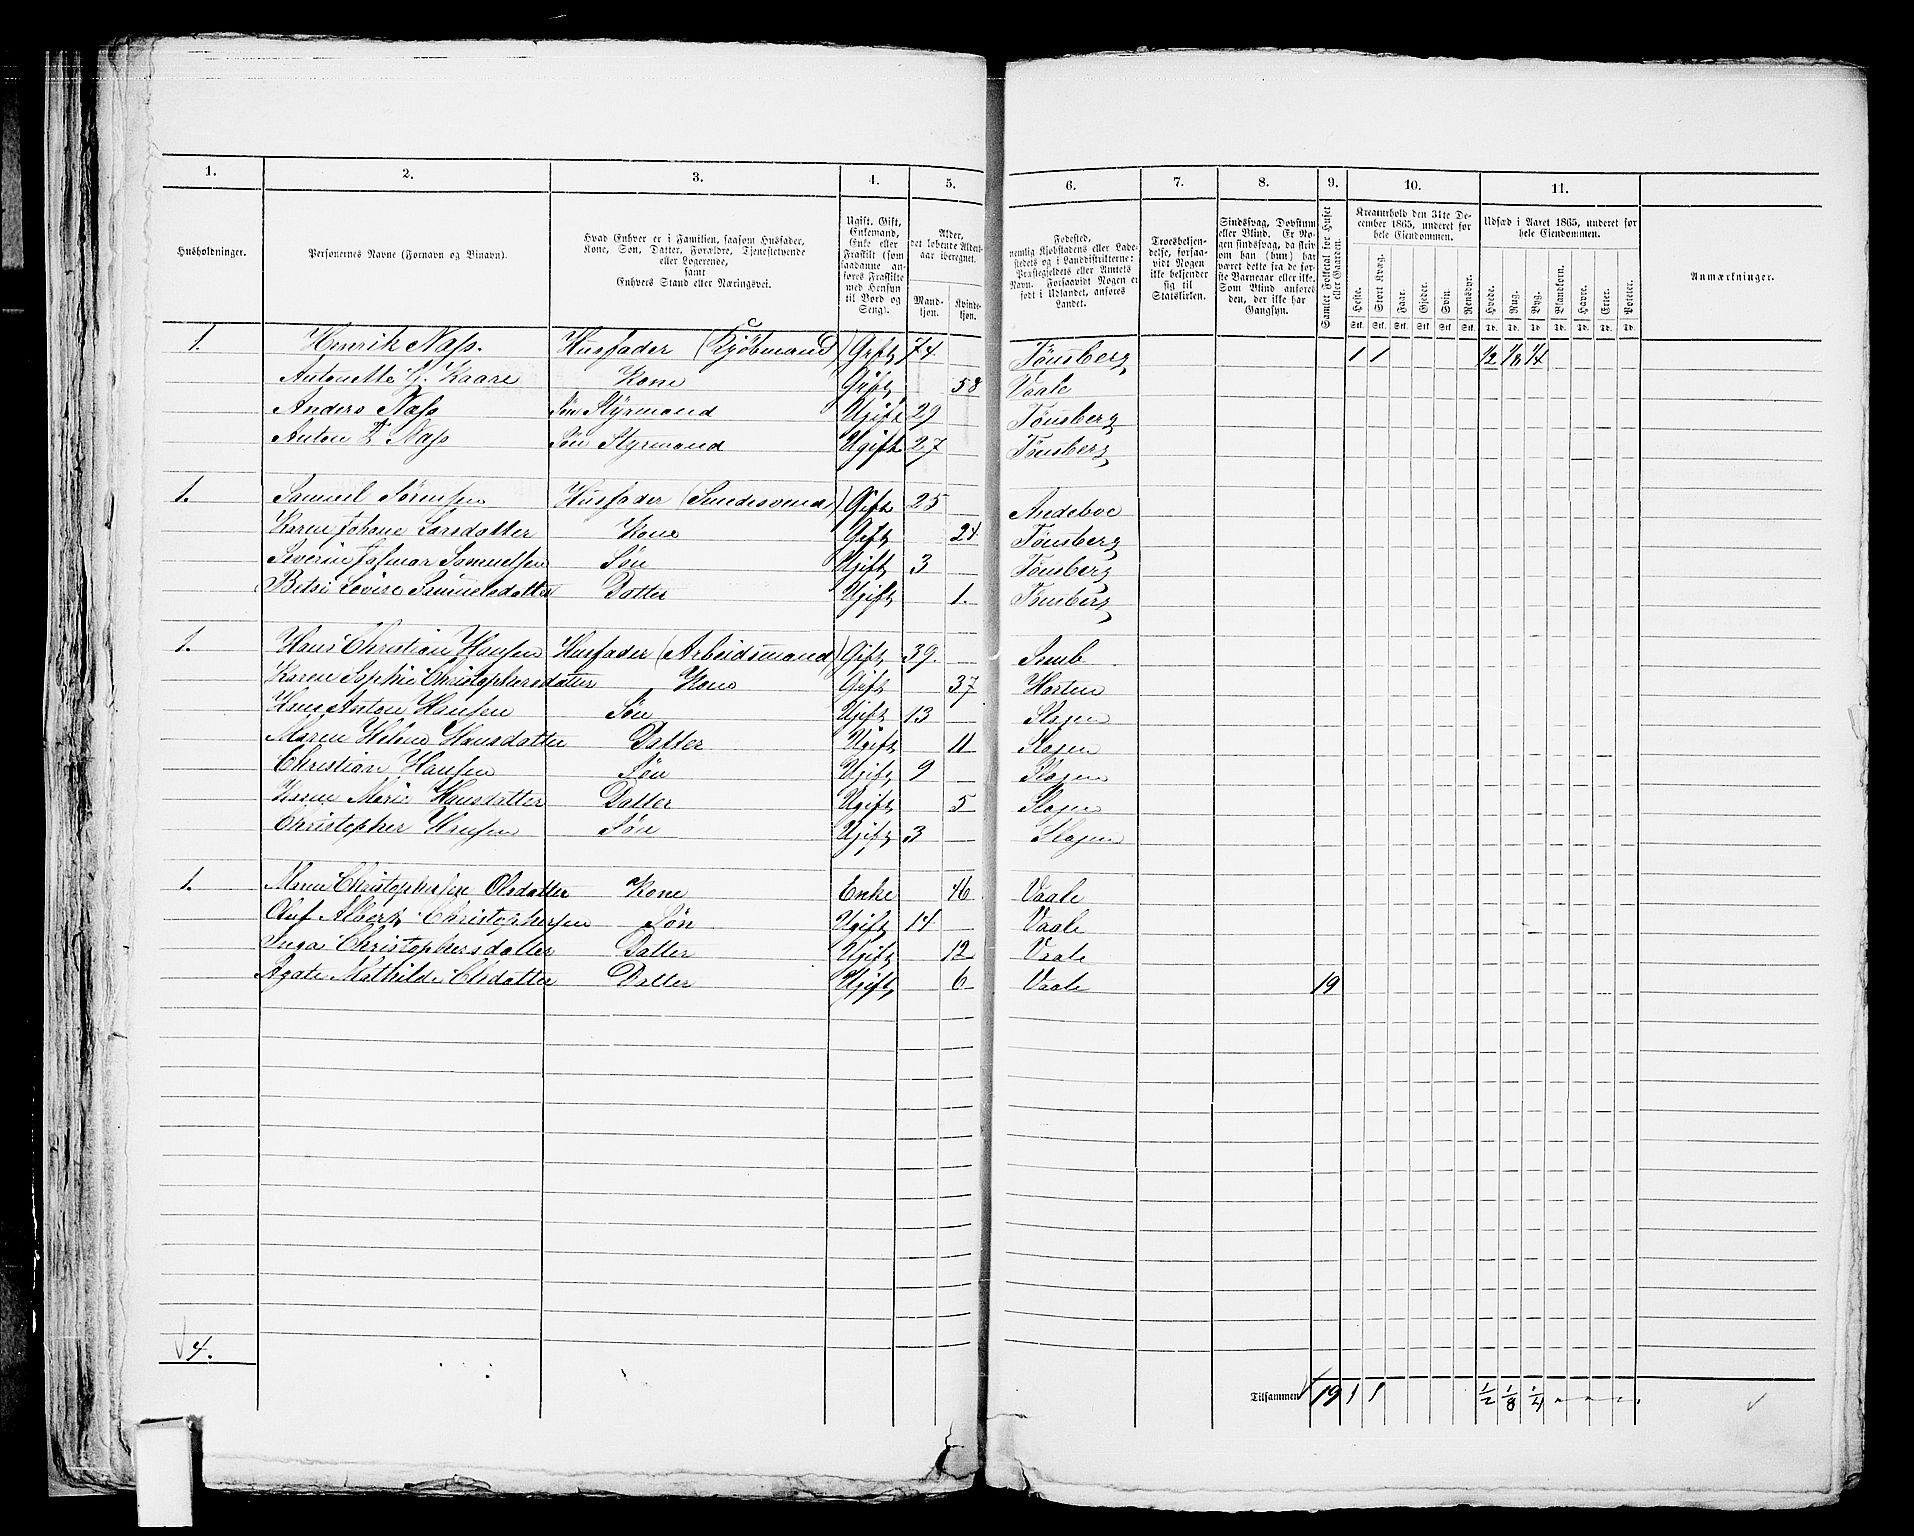 1. 2. 3. 4. 5. 6. 7. 8. 9. 10. 11.
Husholdninger.
Personernes Navne (Fornavn og Binavn).
Hvad Enhver er i Familien, saasom Husfader,
Kone, Søn, Datter, Forældre, Tjenestetyende
eller Logerende,
samt
Enhvers Stand eller Næringsvei.
Ugift, Gift,
Enkemand,
Enke eller
Fraskilt (som
saadanne anføres Fraskilte
med Hensyn
til Bord og
Seng).
Alder,
det løbende Alders-
aar iberegnet.
Mand-
kjøn.
Kvinde-
kjøn.
Fødested,
nemlig Kjøbstadens eller Lade-
stedets og i Landdistrikterne:
Præstegjeldets eller Amtets
Navn. Forsaavidt Nogen er
født i Udlandet, anføres
Landet.
Troesbekjen-
delse, forsaa-
vidt Nogen
ikke bekjender
sig til
Statskirken.
Sindssvag, Døvstum
eller Blind. Er No-
gen sindssvag, da skriv
om han (hun) har
været dette fra de før-
ste Barneaar eller ikke.
Som Blind anføres
den, der ikke har
Gangsyn.
Samlet Folketal for Huset
eller Gaarden.
Kreaturhold den 31te De-
cember 1865, underet for
hele Eiendommen.
Heste. Stort Kvæg. Faar. Gjeder. Svin. Rensdyr.
Stk. Stk. Stk. Stk. Stk. Stk.
Udsæd i Aaret 1865, underet for
hele Eiendommen.
Hvede. Rug. Byg. Blandkorn. Havre. Erter. Poteter.
Td. Td. Td. Td. Td. Td. Td.
Anmærkninger.
1. Henrik Nass. Husfader (Kjöbmand) Gift 74. Tönsberg 1 1 1/2 1/8 1/4
Antonette G. Kaare Kone Gift 58 Vaale
Anders Nass Sön Styrmand Ugift 29 Tönsberg
Anton T Nass Sön Styrmand Ugift 27 Tönsberg
1. Samuel Sörensen Husfader (Smedesvend) Gift 25 Andeboe
Karen Johane Larsdatter Kone Gift 24. Tönsberg
Severin Hjalmar Samuelsen Sön Ugift 3 Tönsberg
Betsi Lovise Samuelsdatter Datter Ugift 1. Tönsberg
1. Hans Christian Hansen Husfader (Arbeidsmand) Gift 39. Semb
Karen Sophie Christophersdatter Kone Gift 37 Horten
Hans Anton Hansen Sön Ugift 13 Slagen
Maren Helene Hansdatter Datter Ugift 11 Slagen
Christian Hansen Sön Ugift 9 Slagen
Karen Marie Hansdatter Datter Ugift 5 Slagen
Christopher Hansen Sön Ugift 3 Slagen
1. Maren Christophersen Olsdatter Kone Enke 46 Vaale
Oluf Albert Christophersen Sön Ugift 14 Vaale
Inga Christophersdatter Datter Ugift 12 Vaale
Agate Mathilde Olsdatter Datter Ugift 6 Vaale 19
4.
Tilsammen 19 1 1 1/2 1/8 1/4